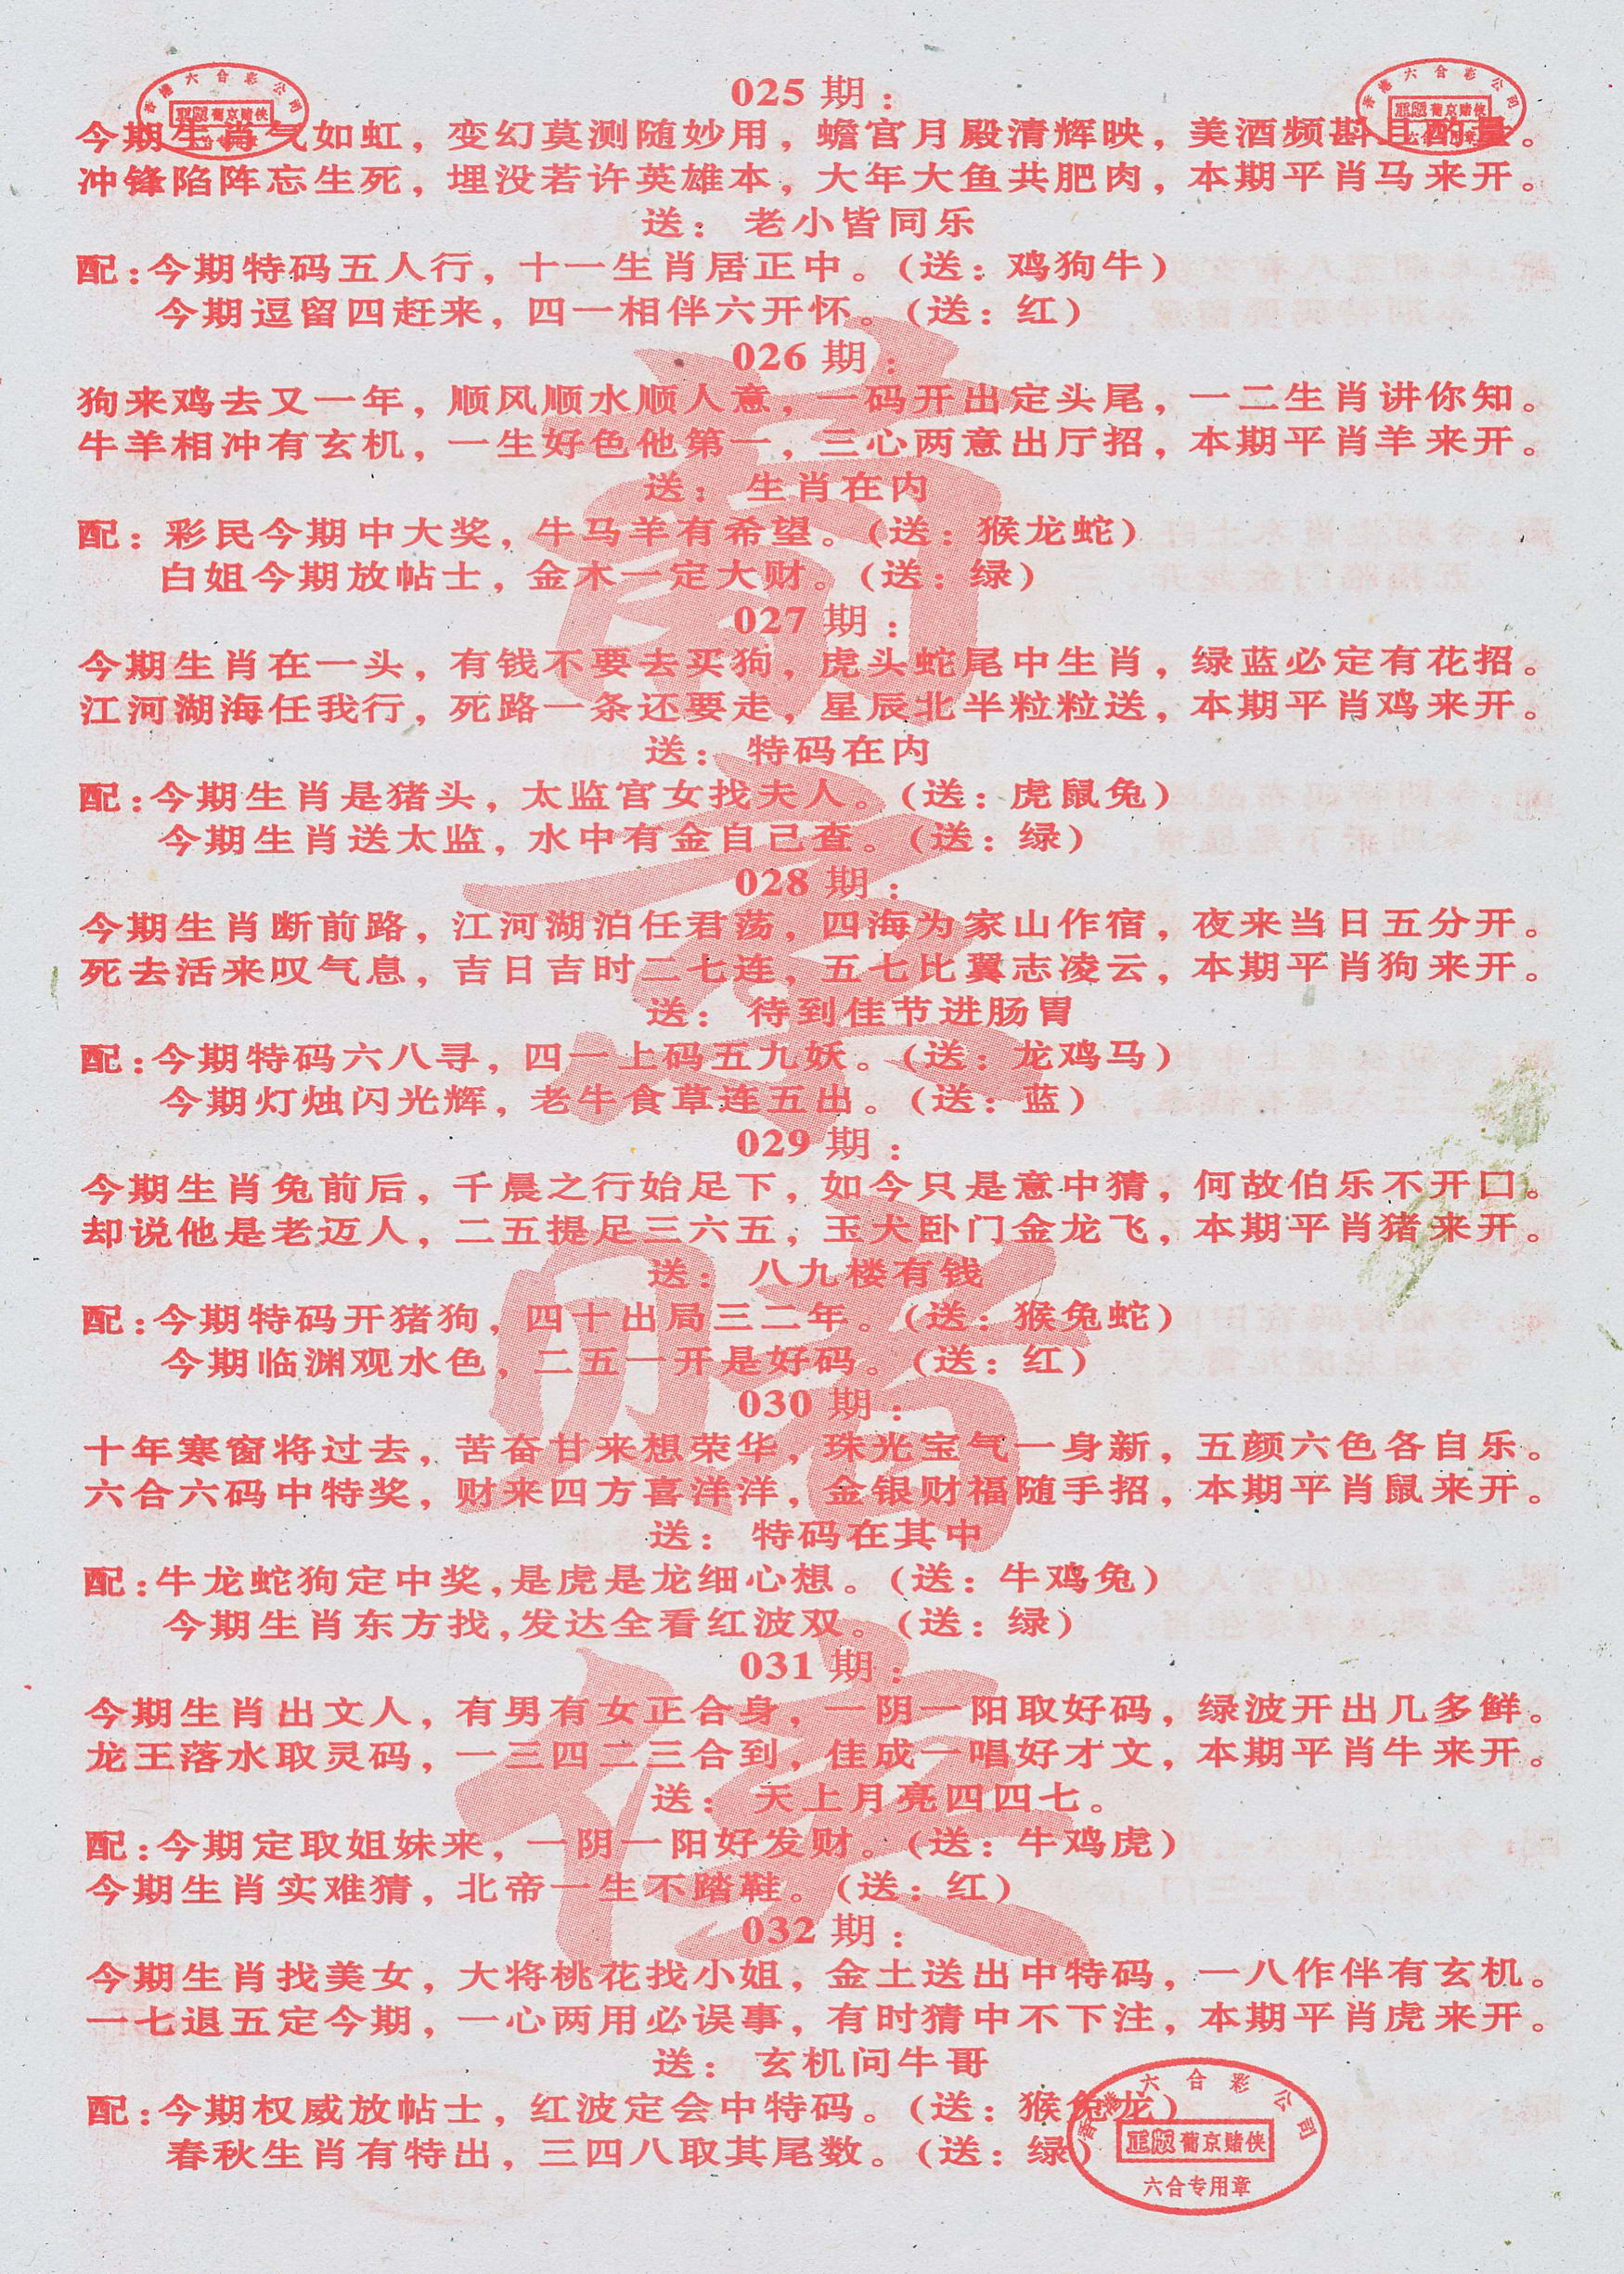 025 期：
今期生肖气如虹，变幻莫测随妙用，蟾宫月殿清辉映，美酒频斟且酌量。
冲锋陷阵忘生死，埋没若许英雄本，大年大鱼共肥肉，本期平肖马来开。
送：老小皆同乐
配：今期特码五人行，十一生肖居正中。（送：鸡狗牛）
今期逗留四赶来，四一相伴六开怀。（送：红）
026 期：
狗来鸡去又一年，顺风顺水顺人意，一码开出定头尾，一二生肖讲你知。
牛羊相冲有玄机，一生好色他第一，三心两意出厅招，本期平肖羊来开。
送：生肖在内
配：彩民今期中大奖，牛马羊有希望。（送：猴龙蛇）
白姐今期放帖士，金木一定大财。（送：绿）
027 期：
今期生肖在一头，有钱不要去买狗，虎头蛇尾中生肖，绿蓝必定有花招。
江河湖海任我行，死路一条还要走，星辰北半粒粒送，本期平肖鸡来开。
送：特码在内
配：今期生肖是猪头，太监官女找夫人。（送：虎鼠兔）
今期生肖送太监，水中有金自己查。（送：绿）
028 期：
今期生肖断前路，江河湖泊任君荡，四海为家山作宿，夜来当日五分开。
死去活来叹气息，吉日吉时二七连，五七比翼志凌云，本期平肖狗来开。
送：待到佳节进肠胃
配：今期特码六八寻，四一上码五九妖。（送：龙鸡马）
今期灯烛闪光辉，老牛食草连五出。（送：蓝）
029 期：
今期生肖兔前后，千晨之行始足下，如今只是意中猜，何故伯乐不开口。
却说他是老迈人，二五提足三六五，玉犬卧门金龙飞，本期平肖猪来开。
送：八九楼有钱
配：今期特码开猪狗，四十出局三二年。（送：猴兔蛇）
今期临渊观水色，二五一开是好码。（送：红）
030 期：
十年寒窗将过去，苦奋甘来想荣华，珠光宝气一身新，五颜六色各自乐。
六合六码中特奖，财来四方喜洋洋，金银财福随手招，本期平肖鼠来开。
送：特码在其中
配：牛龙蛇狗定中奖，是虎是龙细心想。（送：牛鸡兔）
今期生肖东方找，发达全看红波双。（送：绿）
031 期：
今期生肖出文人，有男有女正合身，一阴一阳取好码，绿波开出几多鲜。
龙王落水取灵码，一三四二三合到，佳成一唱好才文，本期平肖牛来开。
送：天上月亮四四七。
配：今期定取姐妹来，一阴一阳好发财。（送：牛鸡虎）
今期生肖实难猜，北帝一生不踏鞋。（送：红）
032 期：
今期生肖找美女，大将桃花找小姐，金土送出中特码，一八作伴有玄机。
一七退五定今期，一心两用必误事，有时猜中不下注，本期平肖虎来开。
送：玄机问牛哥
配：今期权威放帖士，红波定会中特码。（送：猴兔龙）
春秋生肖有特出，三四八取其尾数。（送：绿）
香港六合彩公司
正版葡京赌侠
六合专用章
香港六合彩公司
正版葡京赌侠
六合专用章
香港六合彩公司
正版葡京赌侠
六合专用章
葡京赌侠